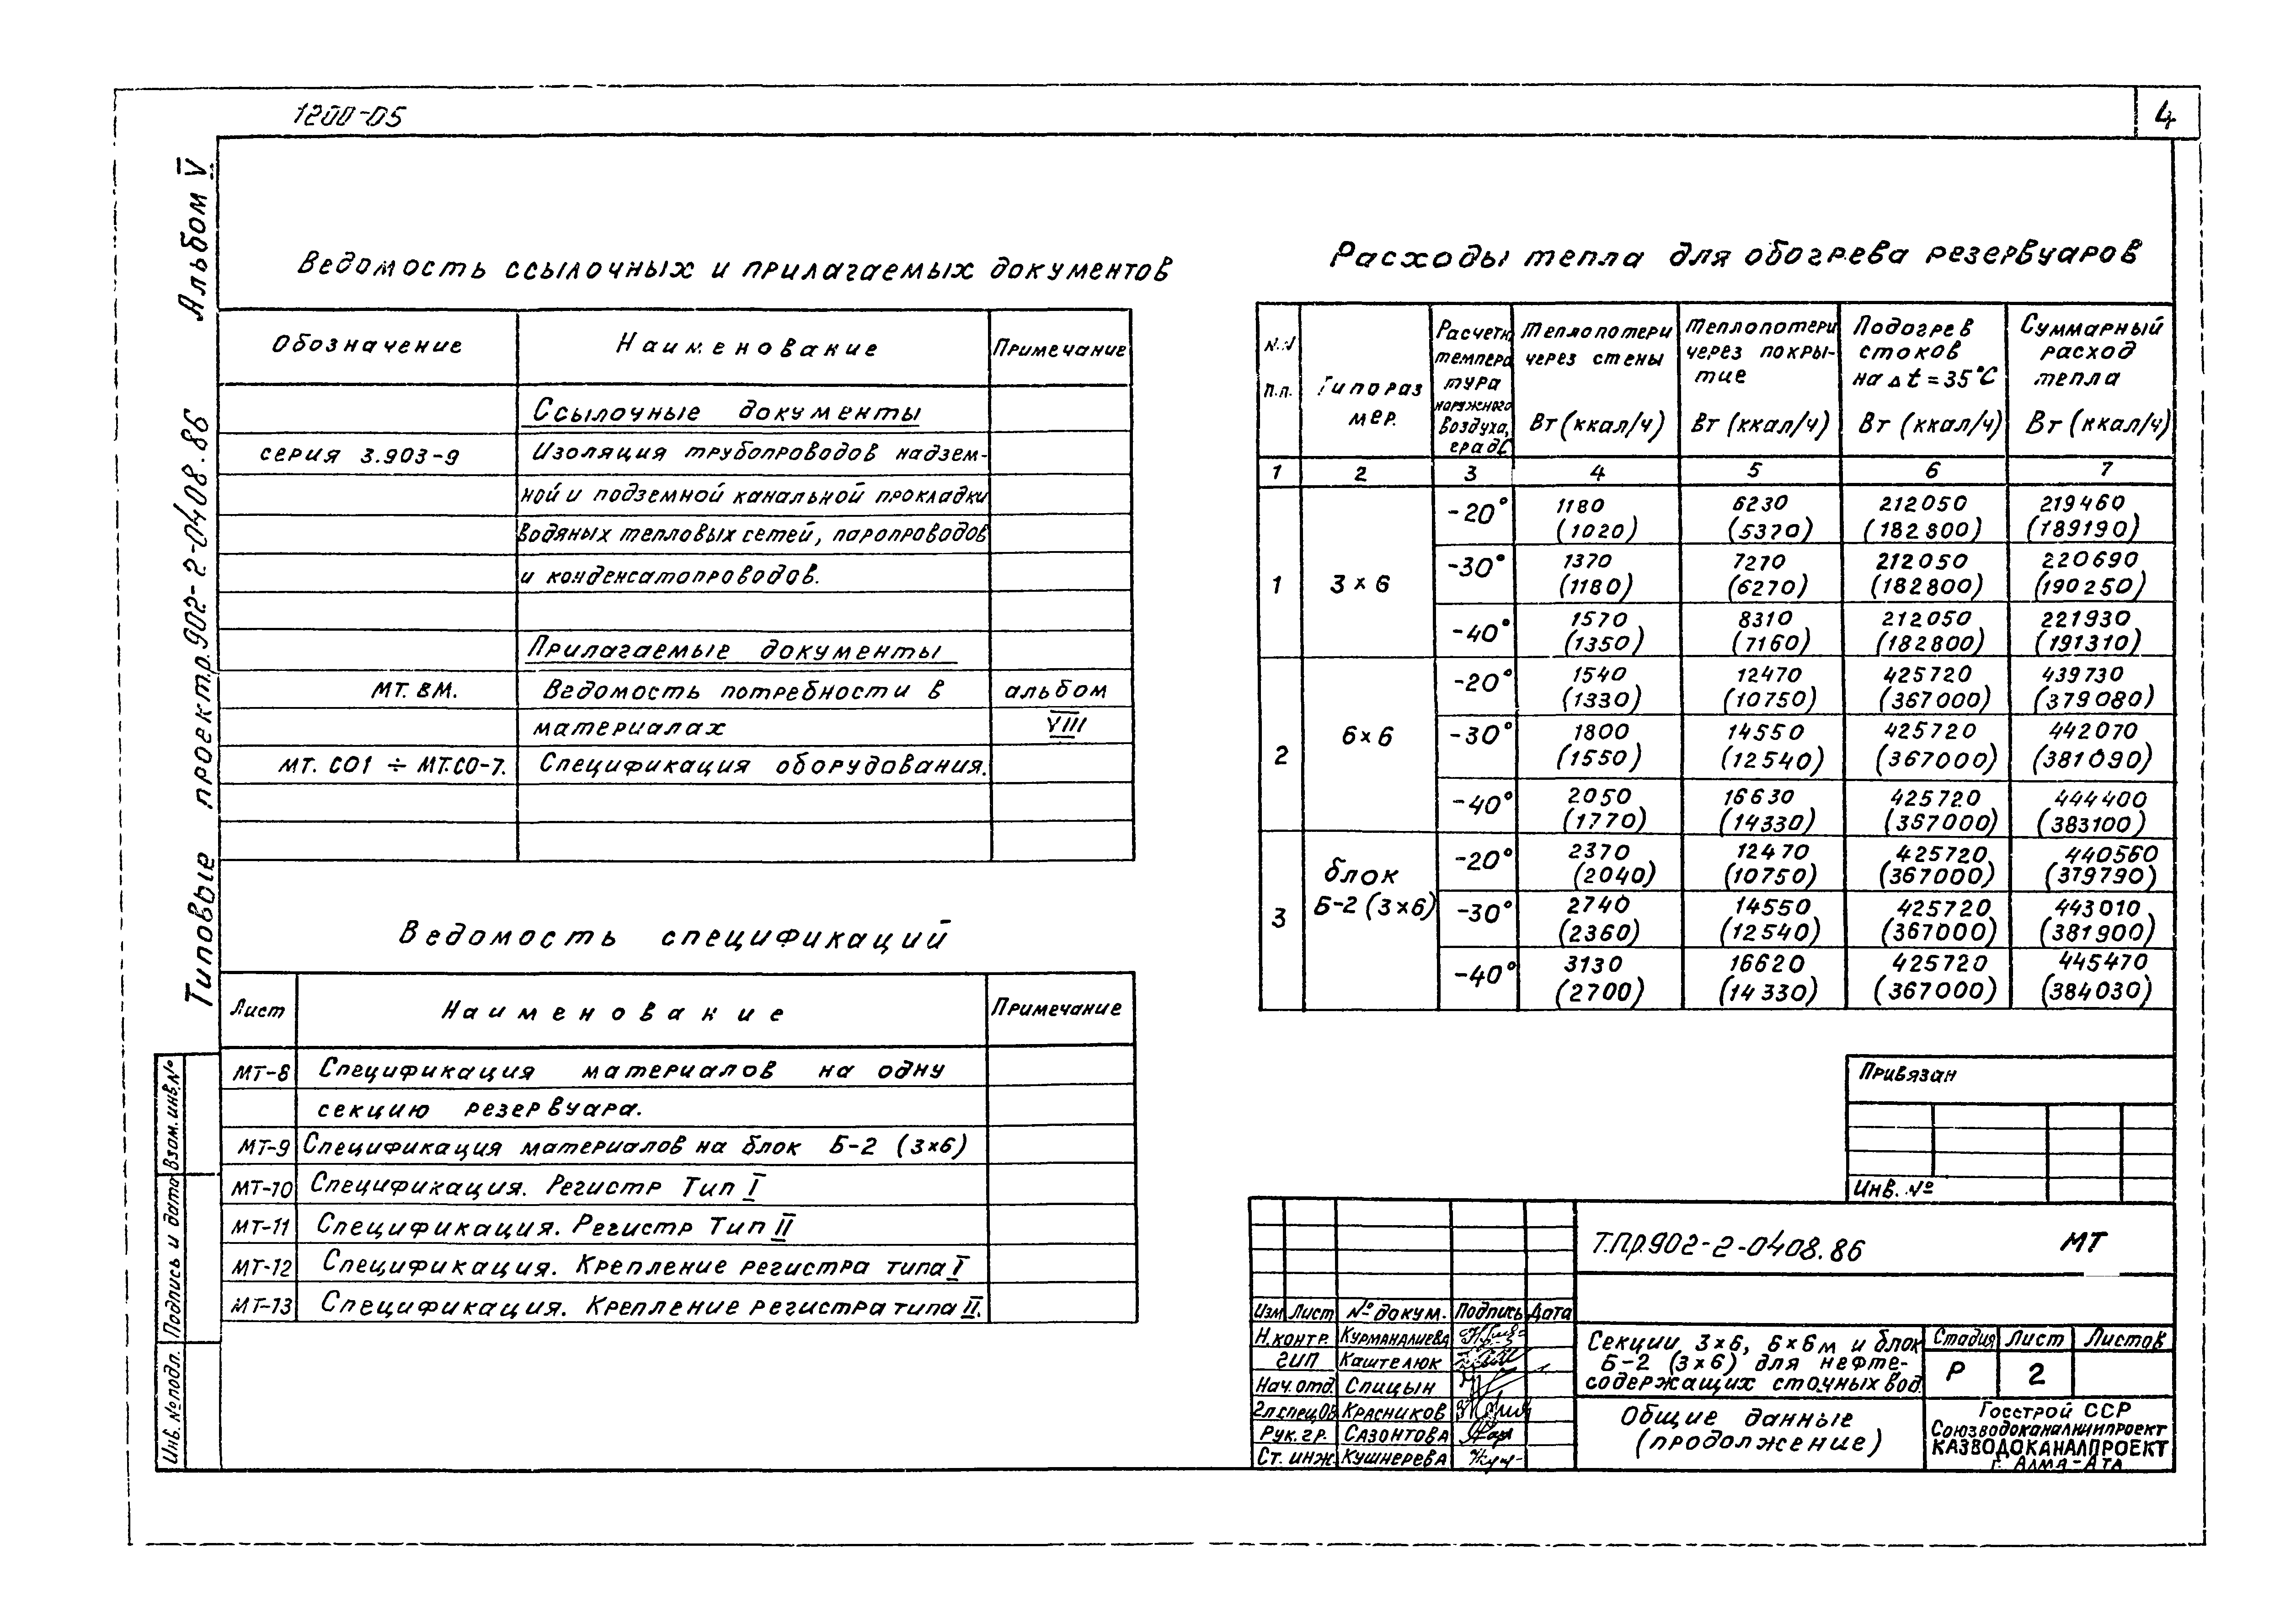 1200-05
4
Альбом V
Типовые проект.р. 902-2-0408.86
Ведомость ссылочных и прилагаемых документов
Обозначение Наименование Примечание
Ссылочные документы
серия 3.903-9 Изоляция трубопроводов надзем-
ной и подземной канальной прокладки
водяных тепловых сетей, паропроводов
и конденсатопроводов.
Прилагаемые документы
МТ. ВМ. Ведомость потребности в альбом
материалах VIII
МТ. СО1 ÷ МТ.СО-7. Спецификация оборудования.
Ведомость спецификаций
Лист Наименование Примечание
МТ-8 Спецификация материалов на одну
секцию резервуара.
МТ-9 Спецификация материалов на блок Б-2 (3×6)
МТ-10 Спецификация. Регистр Тип I
МТ-11 Спецификация. Регистр Тип II
МТ-12 Спецификация. Крепление регистра типа I
МТ-13 Спецификация. Крепление регистра типа II.
Расходы тепла для обогрева резервуаров
N.N п.п.
Типораз мер.
Расчетн. темпера тура наружного воздуха, градС
Теплопотери через стены Вт (ккал/ч)
Теплопотери через покры- тие Вт (ккал/ч)
Подогрев стоков на Δt = 35°С Вт (ккал/ч)
Суммарный расход тепла Вт (ккал/ч)
1 2 3 4 5 6 7
1 3×6 -20° 1180 6230 212050 219460
(1020) (5370) (182800) (189190)
-30° 1370 7270 212050 220690
(1180) (6270) (182800) (190250)
-40° 1570 8310 212050 221930
(1350) (7160) (182800) (191310)
2 6×6 -20° 1540 12470 425720 439730
(1330) (10750) (367000) (379080)
-30° 1800 14550 425720 442070
(1550) (12540) (367000) (381090)
-40° 2050 16630 425720 444400
(1770) (14330) (367000) (383100)
3 блок Б-2 (3×6) -20° 2370 12470 425720 440560
(2040) (10750) (367000) (379790)
-30° 2740 14550 425720 443010
(2360) (12540) (367000) (381900)
-40° 3130 16620 425720 445470
(2700) (14330) (367000) (384030)
Привязан
Инв. №
Т.Пр902-2-0408.86 МТ
Изм Лист № докум. Подпись Дата
Н.контр. Курмандлиева
ГИП Каштелюк
Нач.отд. Спицын
Гл.спец ОВ Красников
Рук. гр. Сазонтова
Ст. инж. Кушнерева
Секции 3×6, 6×6м и блок
Б-2 (3×6) для нефте-
содержащих сточных вод.
Стадия Лист Листов
Р 2
Общие данные
(продолжение)
Госстрой ССР
Союзводоканалниипроект
КАЗВОДОКАНАЛПРОЕКТ
г. Алма-Ата
Взам. инв. №
Подпись и дата
Инв. № подл.